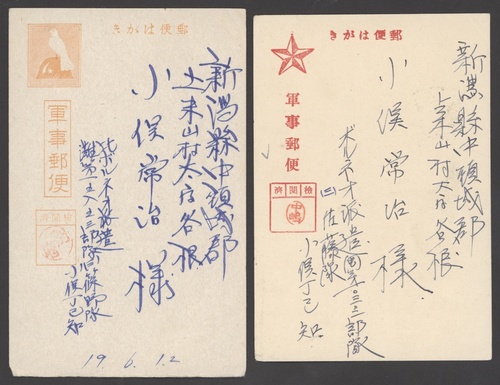 郵便はがき
新潟縣中頸城郡
上米山村大字谷根
小俣常治様
軍事郵便
檢閲濟
北ボルネオ派遣
小俣丁巳知
19.6.12
郵便はがき
新潟縣中頸城郡
上米山村大字谷根
小俣常治様
軍事郵便
檢閲濟
ボルネオ派遣
部隊
佐藤隊
小俣丁巳知